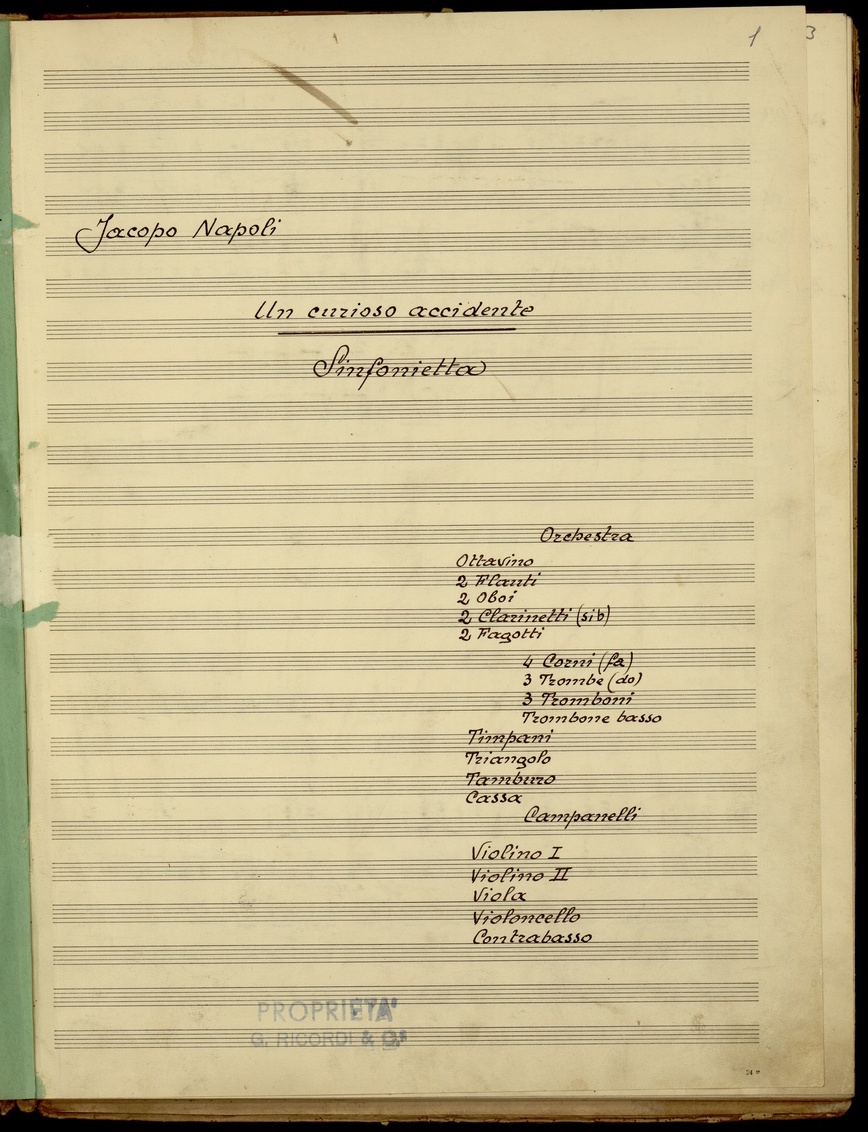 1
3
Jacopo Napoli
Un curioso accidente
Sinfonietta
Orchestra
Ottavino
2 Flauti
2 Oboi
2 Clarinetti (sib)
2 Fagotti
4 Corni (fa)
3 Trombe (do)
3 Tromboni
Trombone basso
Timpani
Triangolo
Tamburo
Cassa
Campanelli
Violino I
Violino II
Viola
Violoncello
Contrabasso
PROPRIETA'
G. RICORDI & C.